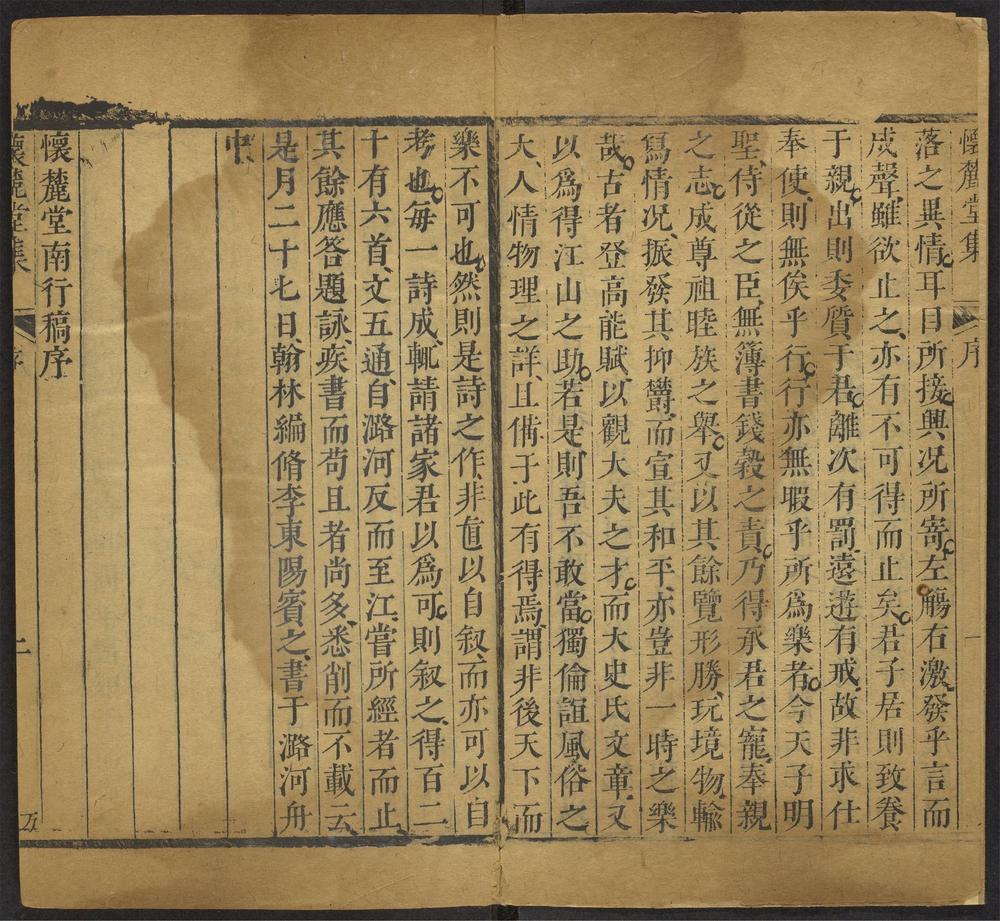 懷麓堂集 序 一
落之異情、耳目所接、興况所寄、左觸右激、發乎言而
成聲、雖欲止之、亦有不可得而止矣。君子居則致養
于親、出則委質于君、離次有罰、遠遊有戒、故非求仕
奉使、則無俟乎行、行亦無暇乎所爲樂者。今天子明
聖、侍從之臣、無簿書錢穀之責、乃得承君之寵、奉親
之志、成尊祖睦族之舉、又以其餘覽形勝、玩境物、輸
寫情况、振發其抑鬱、而宣其和平、亦豈非一時之樂
哉。古者登高能賦、以觀大夫之才、而太史氏文章、又
以爲得江山之助、若是則吾不敢當、獨倫誼風俗之
大、人情物理之詳、且備于此有得焉、謂非後天下而
樂不可也、然則是詩之作、非直以自叙、而亦可以自
考也。每一詩成、輒請諸家君以爲可、則叙之、得百二
十有六首、文五通、自潞河反而至江、嘗所經者而止、
其餘應答題詠、疾書而苟且者尚多、悉削而不載云、
是月二十七日、翰林編脩李東陽賓之、書于潞河舟
中、
懷麓堂南行稿序
懷麓堂集 序 二